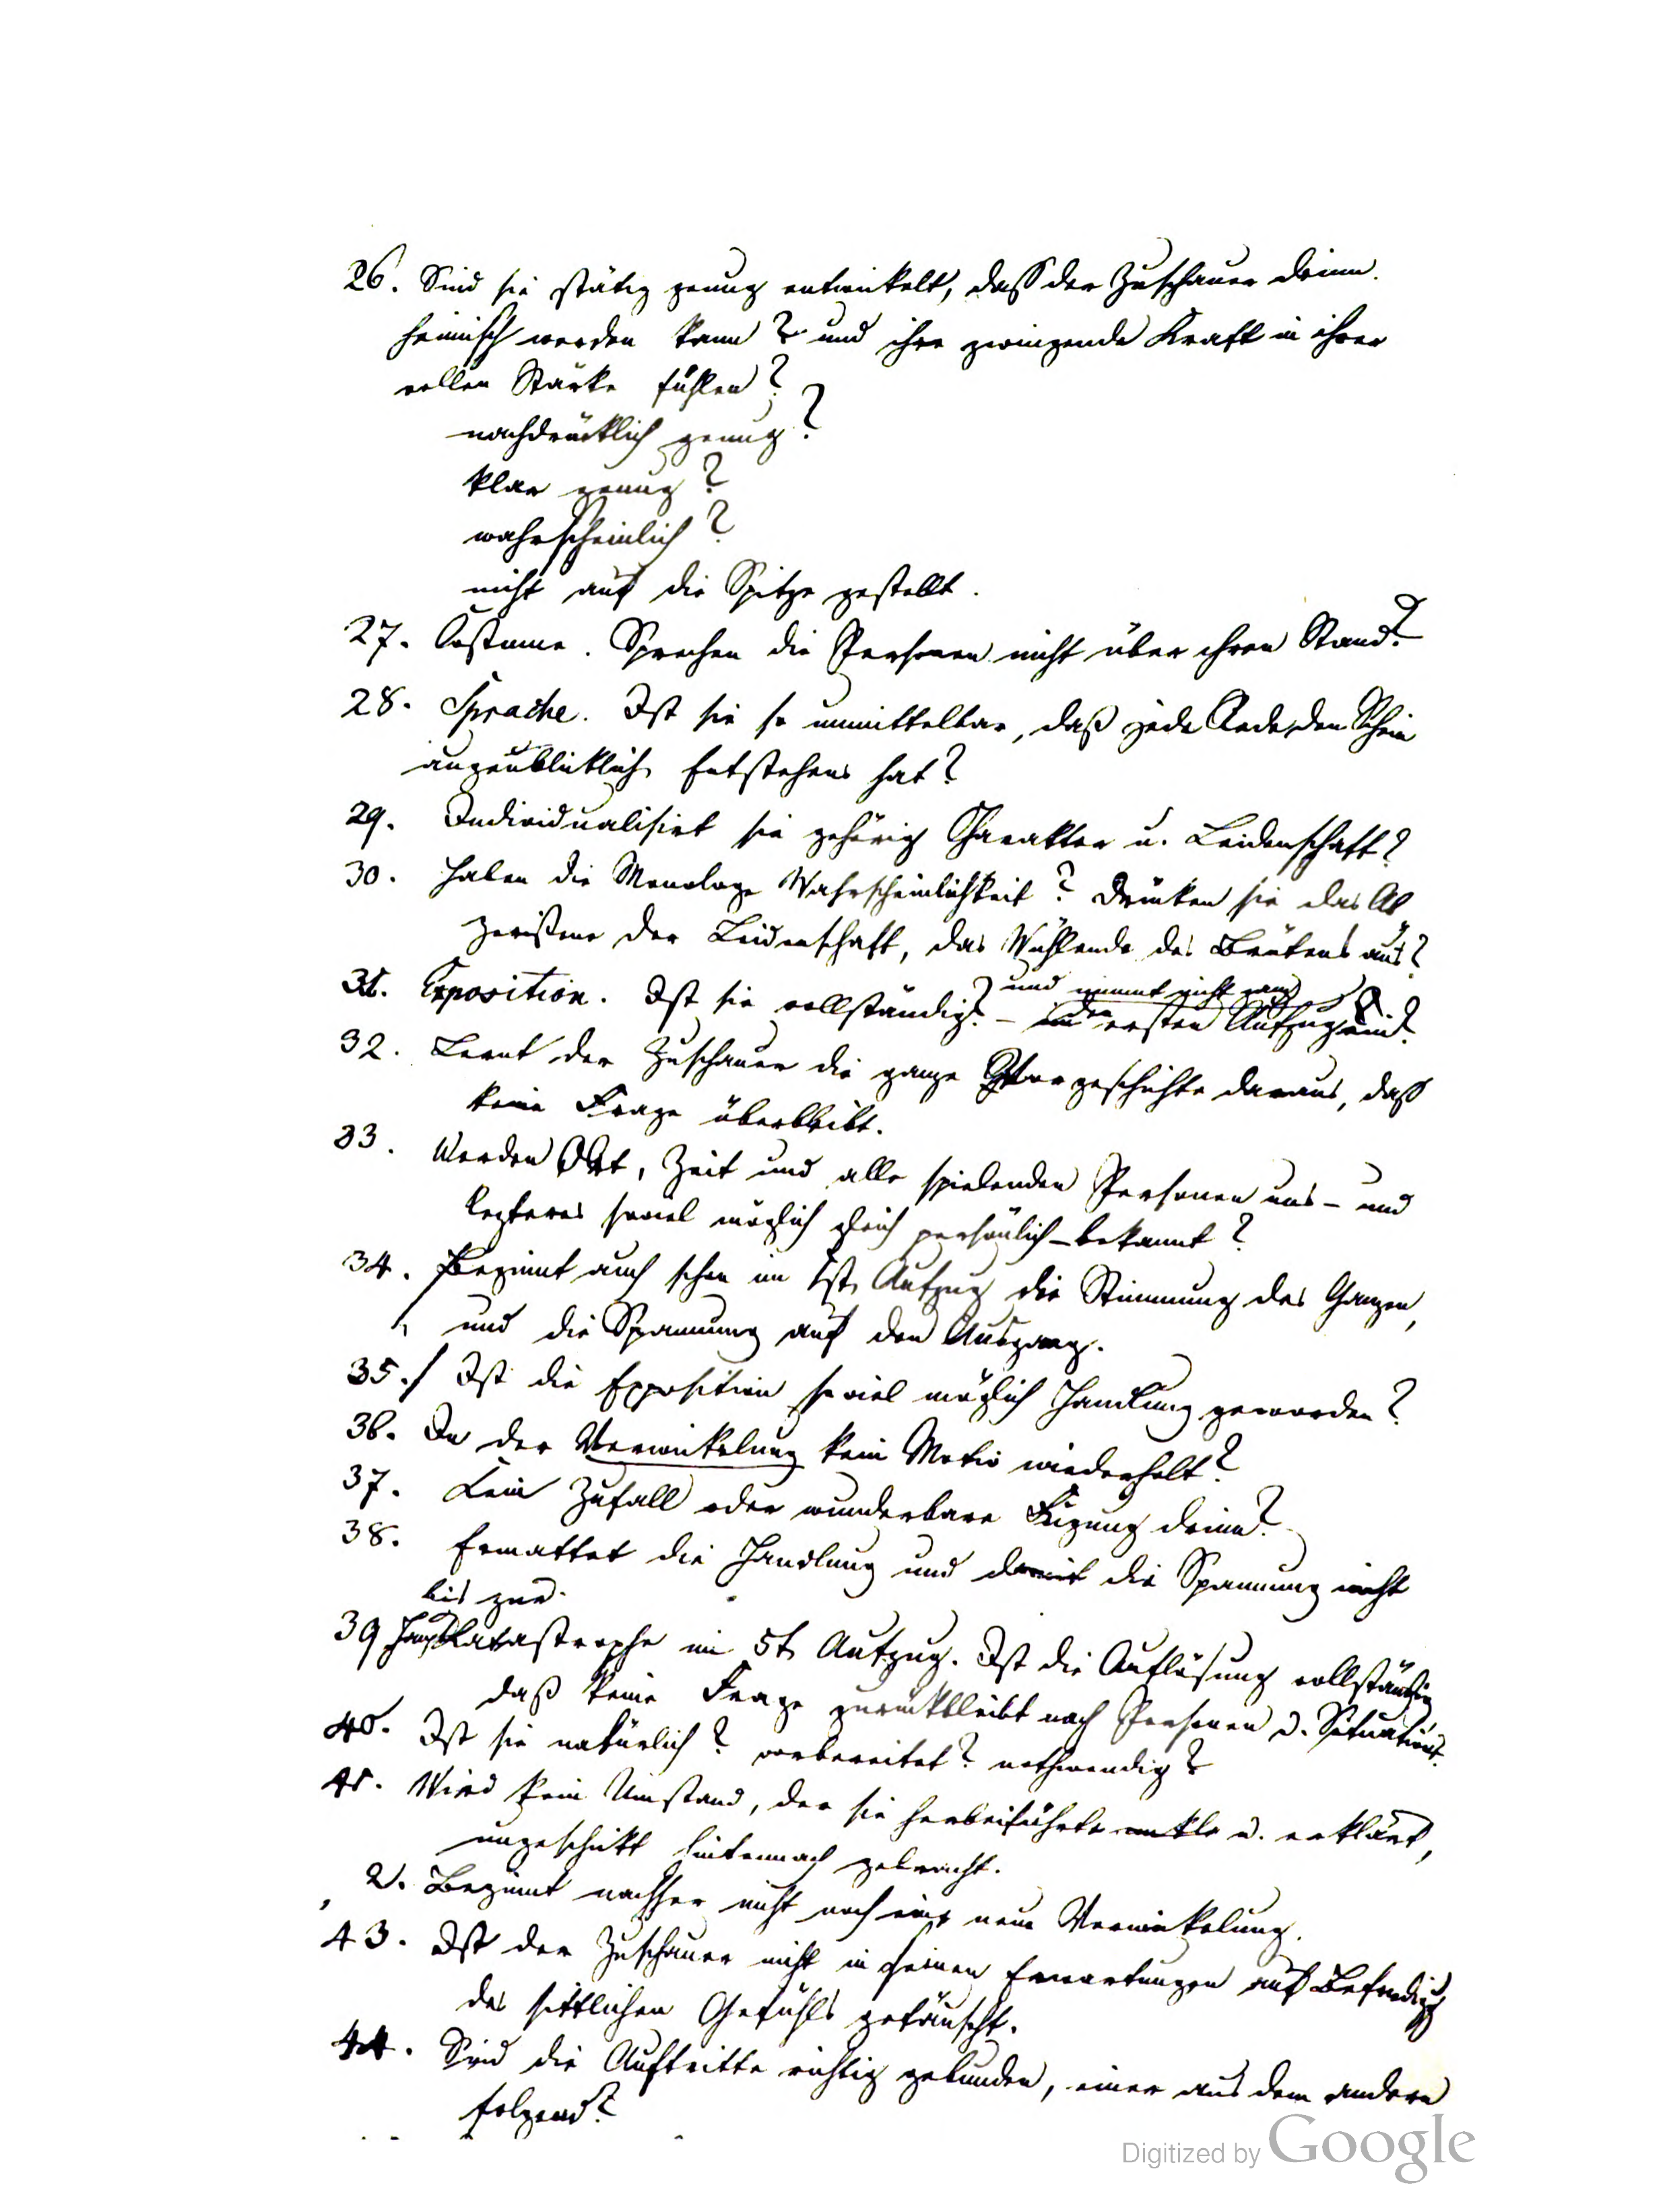 26. Sind sie stätig genug entwickelt, dass der Zuschauer drinn
heimisch werden kann? und ihre zwingende Kraft in ihrer
vollen Stärke fühlen?
nachdrücklich genug?
klar genug?
wahrscheinlich?
nicht auf die Spitze gestellt.
27. Costume. Sprechen die Personen nicht über ihren Stand?
28. Sprache. Ist sie so unmittelbar, daß jede Rede den Schein
augenblicklich Entstehens hat?
29. Individualisirt sie gehörig Charakter u. Leidenschaft?
30. Haben die Monologe Wahrscheinlichkeit? Drücken sie das Ab
gerißene der Leidenschaft, das Wühlende des Brütens aus?
und nimmt nicht ganz
31. Exposition. Ist sie vollständig? – den ersten Aufzug ein?
32. Lernt der Zuschauer die ganze Vorgeschichte daraus, daß
keine Frage überbleibt.
33. Werden Ort, Zeit und alle spielenden Personen uns – und
letzteres soviel möglich gleich persönlich – bekannt?
34. Beginnt auch schon im 1st Aufzug die Stimmung des Ganzen,
und die Spannung auf den Ausgang.
35. Ist die Exposition soviel möglich Handlung geworden?
36. In der Verwickelung kein Motiv wiederholt?
37. Kein Zufall oder wunderbare Fügung drinn?
38. Ermattet die Handlung und damit die Spannung nicht
bis zur
39 Hauptkatastrophe im 5t Aufzug. Ist die Auflösung vollständig
daß keine Frage zurückbleibt nach Personen u. Situation?
40. Ist sie natürlich? vorbereitet? nothwendig?
41. Wird kein Umstand, der sie herbeiführte u. erklärt,
ungeschickt hintennach gebracht.
2. Beginnt nachher nicht noch eine neue Verwickelung.
43. Ist der Zuschauer nicht in seinen Erwartungen auf Befriedigg
des sittlichen Gefühls getäuscht.
44. Sind die Auftritte richtig gebunden, einer aus dem andern
folgend?
Digitized by Google